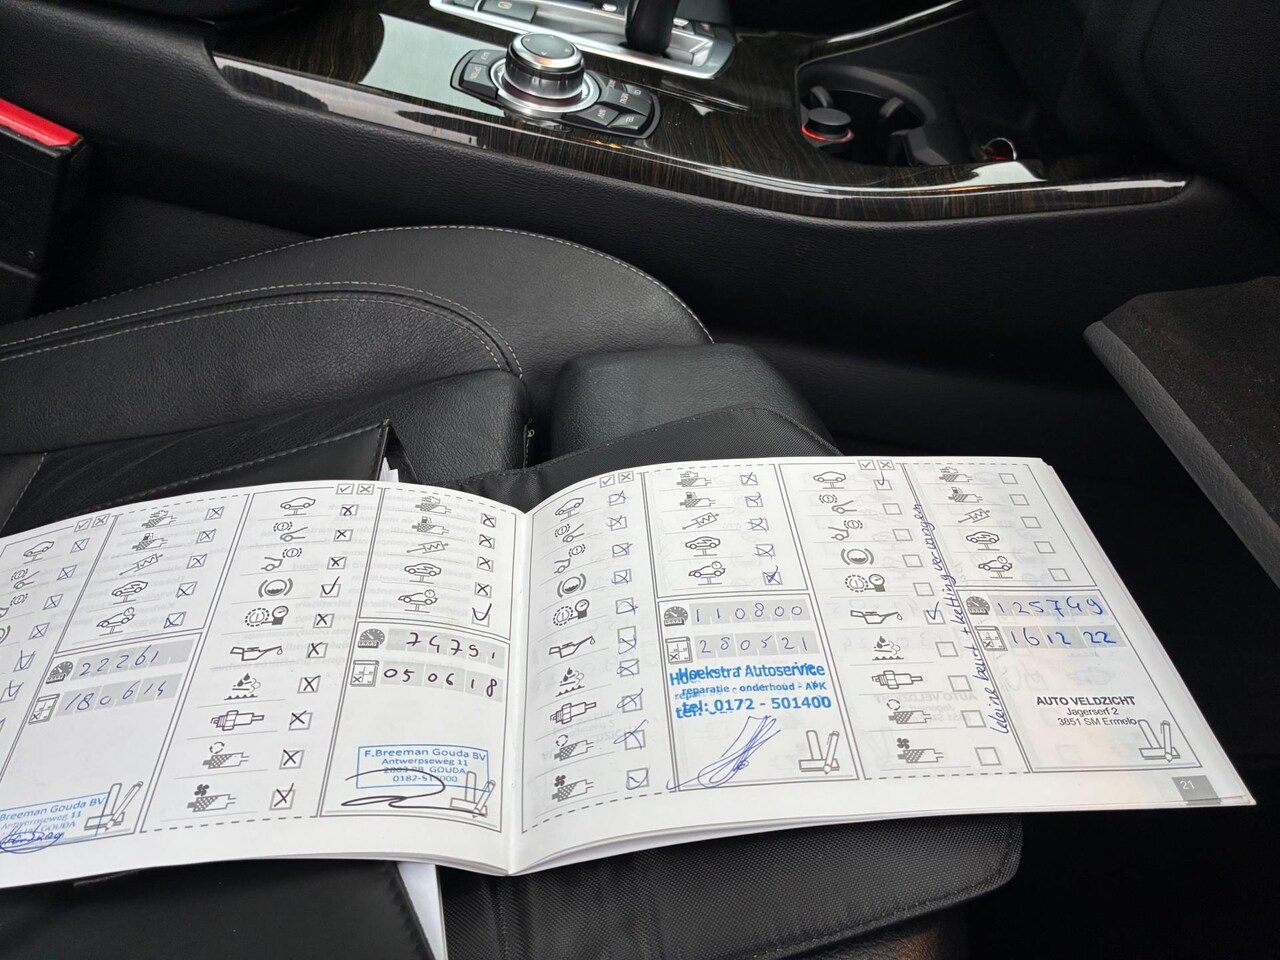 22261
180614
Breeman Gouda BV
Antwerpseweg 11
GOUDA
74751
050618
F.Breeman Gouda BV
Antwerpseweg 11
2803 PB GOUDA
110800
280521
Hoekstra Autoservice
reparatie - onderhoud - APK
tel: 0172 - 501400
kleine beurt + ketting vervangen
125749
161222
AUTO VELDZICHT
Jagerserf 2
3851 SM Ermelo
21